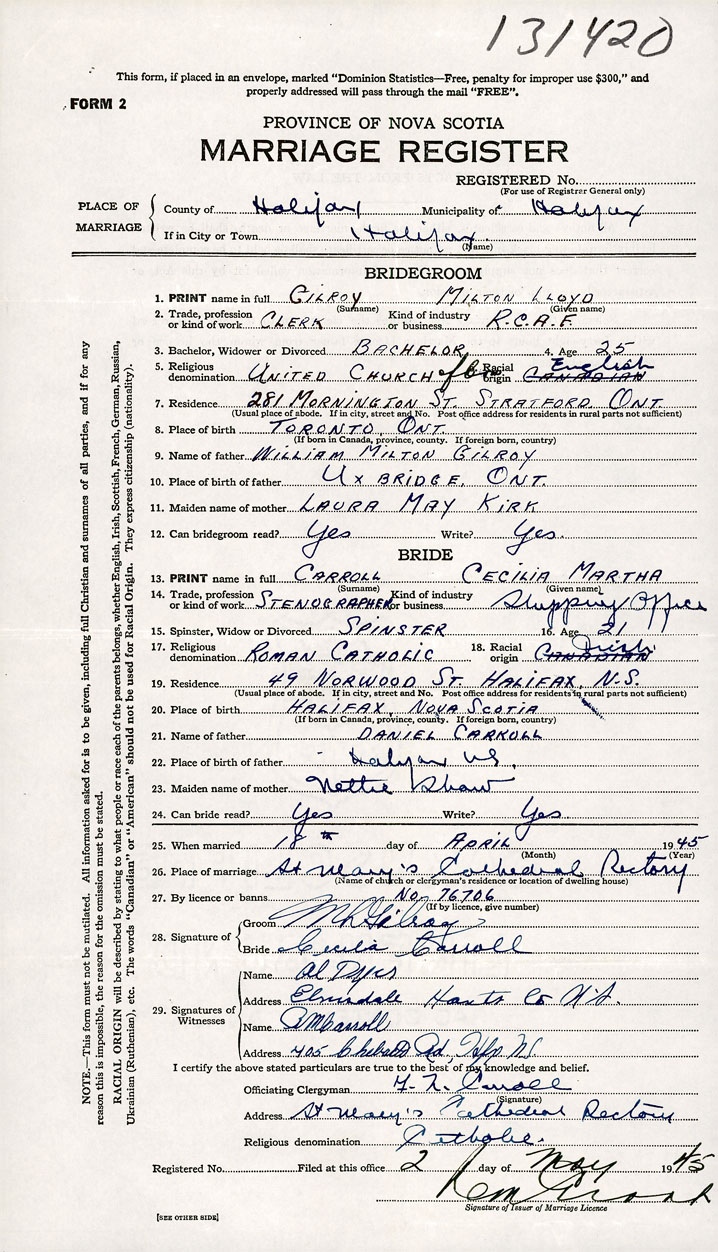 131420
This form, if placed in an envelope, marked "Dominion Statistics—Free, penalty for improper use $300," and
properly addressed will pass through the mail "FREE".
FORM 2
PROVINCE OF NOVA SCOTIA
MARRIAGE REGISTER
REGISTERED No.
(For use of Registrar General only)
PLACE OF MARRIAGE
County of Halifax Municipality of Halifax
If in City or Town Halifax.
(Name)
BRIDEGROOM
1. PRINT name in full GILROY MILTON LLOYD
(Surname) (Given name)
2. Trade, profession or kind of work CLERK Kind of industry or business R.C.A.F.
3. Bachelor, Widower or Divorced BACHELOR 4. Age 25
5. Religious denomination UNITED CHURCH Racial origin CANADIAN English
7. Residence 281 MORNINGTON ST. STRATFORD, ONT.
(Usual place of abode. If in city, street and No. Post office address for residents in rural parts not sufficient)
8. Place of birth TORONTO, ONT.
(If born in Canada, province, county. If foreign born, country)
9. Name of father WILLIAM MILTON GILROY
10. Place of birth of father UXBRIDGE, ONT.
11. Maiden name of mother LAURA MAY KIRK
12. Can bridegroom read? Yes Write? Yes.
BRIDE
13. PRINT name in full CARROLL CECILIA MARTHA
(Surname) (Given name)
14. Trade, profession or kind of work STENOGRAPHER Kind of industry or business Shipping Office
15. Spinster, Widow or Divorced SPINSTER 16. Age 21
17. Religious denomination ROMAN CATHOLIC 18. Racial origin CANADIAN Irish
19. Residence 49 NORWOOD ST. HALIFAX, N.S.
(Usual place of abode. If in city, street and No. Post office address for residents in rural parts not sufficient)
20. Place of birth HALIFAX, NOVA SCOTIA
(If born in Canada, province, county. If foreign born, country)
21. Name of father DANIEL CARROLL
22. Place of birth of father Halifax NS.
23. Maiden name of mother Nettie Shaw
24. Can bride read? Yes Write? Yes
25. When married 18th day of APRIL 1945
(Month) (Year)
26. Place of marriage St Mary's Cathedral Rectory
(Name of church or clergyman's residence or location of dwelling house)
27. By licence or banns No. 76706
(If by licence, give number)
28. Signature of Groom M L Gilroy
Bride Cecilia Carroll
29. Signatures of Witnesses
Name Al Dyes
Address Elmsdale Hants Co N.S.
Name Carroll
Address 405 Chebucto Rd, Hfx NS.
I certify the above stated particulars are true to the best of my knowledge and belief.
Officiating Clergyman Carroll
(Signature)
Address St Mary's Cathedral Rectory
Religious denomination Catholic.
Registered No. Filed at this office 2 day of May 1945
Signature of Issuer of Marriage Licence
[SEE OTHER SIDE]
NOTE.—This form must not be mutilated. All information asked for is to be given, including full Christian and surnames of all parties, and if for any
reason this is impossible, the reason for the omission must be stated.
RACIAL ORIGIN will be described by stating to what people or race each of the parents belongs, whether English, Irish, Scottish, French, German, Russian,
Ukrainian (Ruthenian), etc. The words "Canadian" or "American" should not be used for Racial Origin. They express citizenship (nationality).